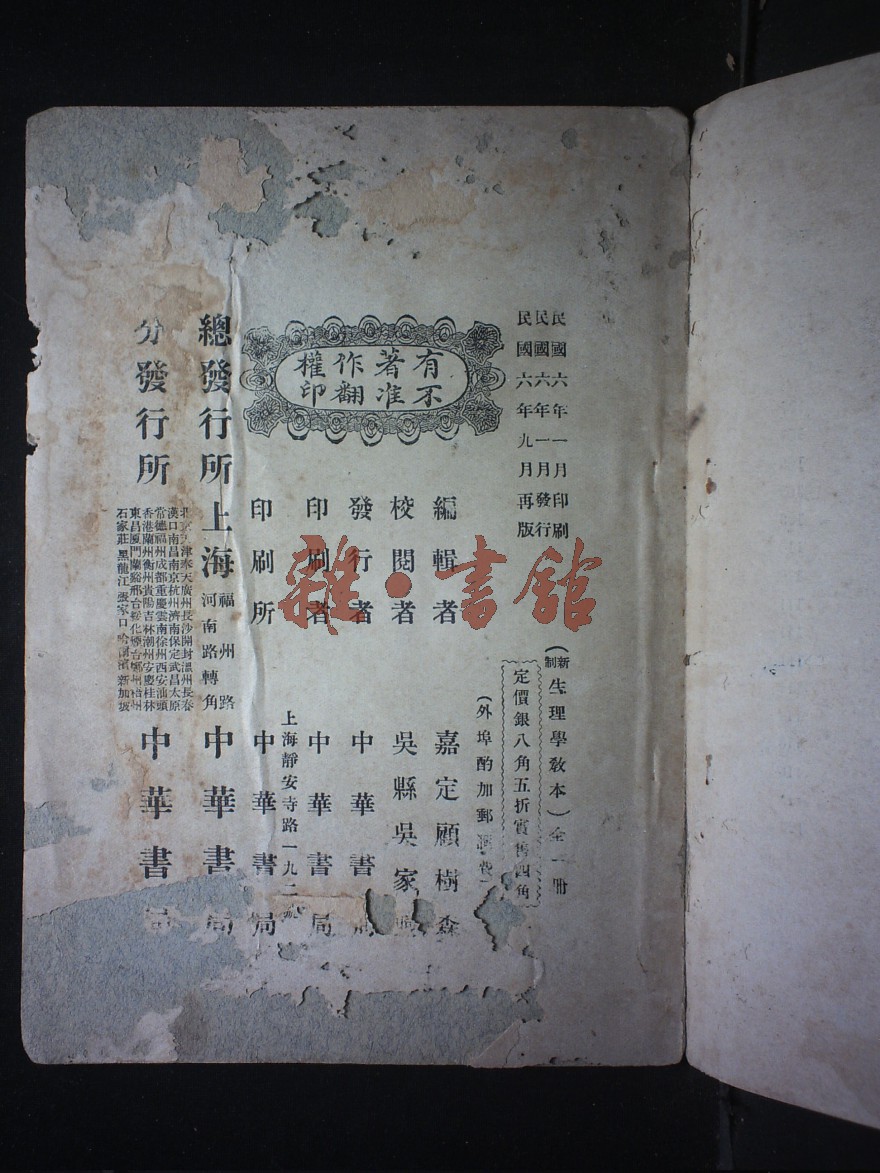 民國六年一月印刷
民國六年一月發行
民國六年九月再版
(新制生理學教本)全一冊
定價銀八角五折實售四角
(外埠酌加郵費)
有著作權
不准翻印
編輯者 嘉定顧樹森
校閱者 吳縣吳家
發行者 中華書局
印刷者 中華書局
印刷所 上海靜安寺路一九二號 中華書局
總發行所 上海福州路河南路轉角 中華書局
分發行所
北京天津奉天廣州長沙開封溫州長春
漢口南昌南京杭州濟南保定武昌太原
常德福州成都重慶雲南徐州西安汕頭
香港蘭州衡州貴陽吉林潮州安慶桂林
東昌廈門蘭谿邢台綏化煙台鄭州梧州
石家莊黑龍江張家口哈爾濱新加坡
中華書局
雜·書館